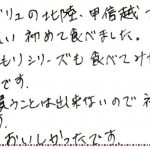 ブリュの北陸、甲信越
い 初めて食べました。
もりシリーズも食べてみ
です。
買うことは出来ないので
おいしかったです。